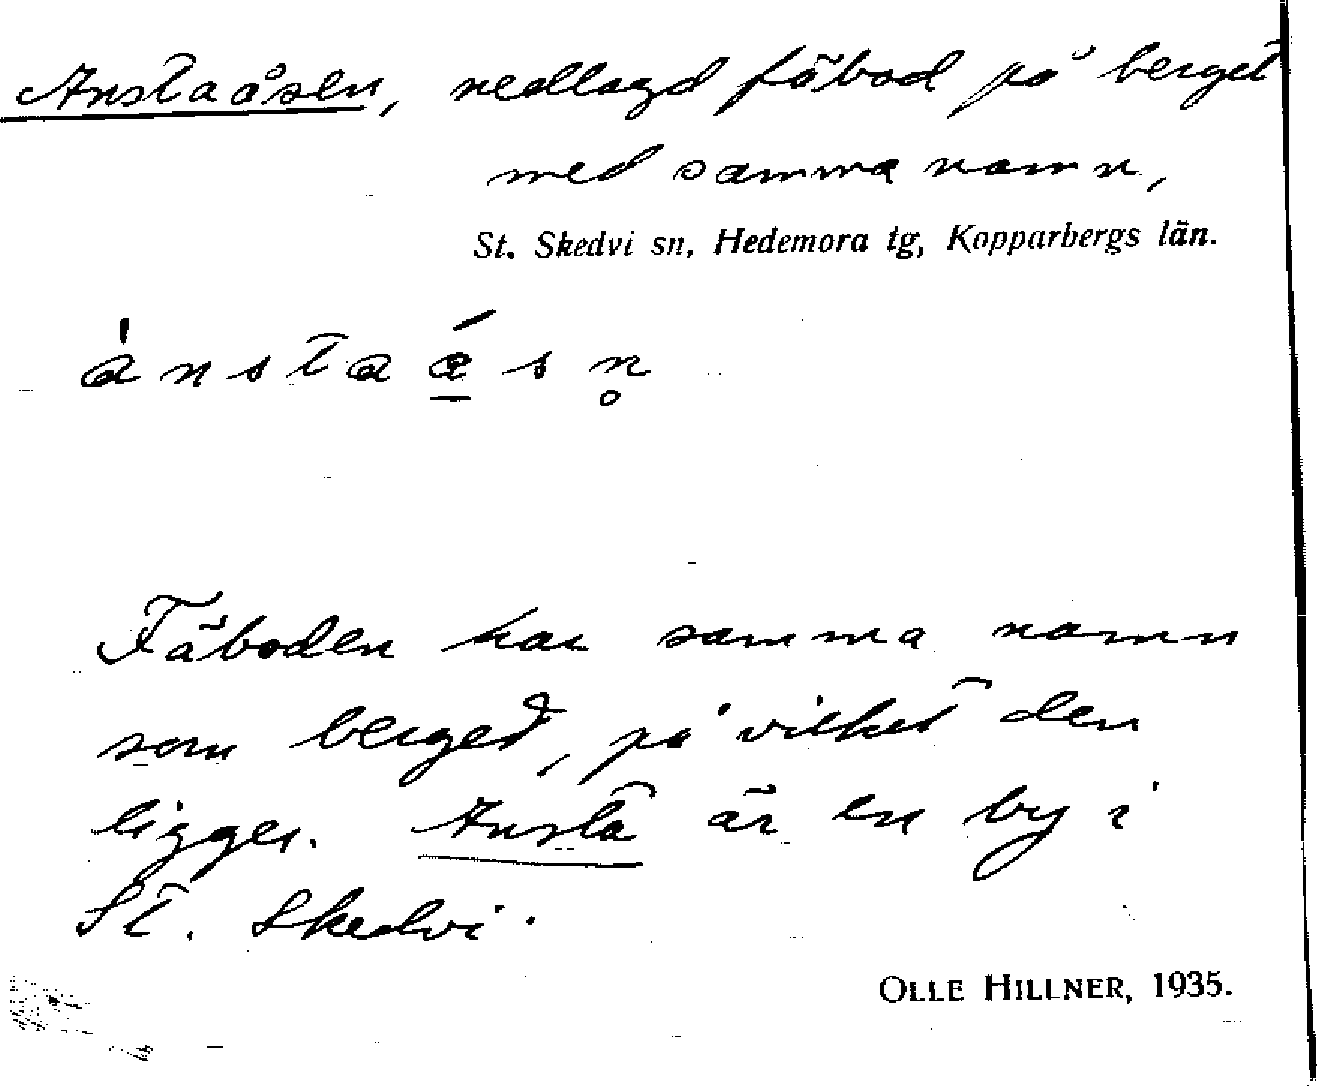 Anstaåsen, nedlagd fäbod på berget
med samma namn,
St. Skedvi sn, Hedemora tg, Kopparbergs län.
Fäboden har samma namn
som berget, på vilket den
ligger. Ansta är en by i
St. Skedvi.
OLLE HILLNER, 1935.